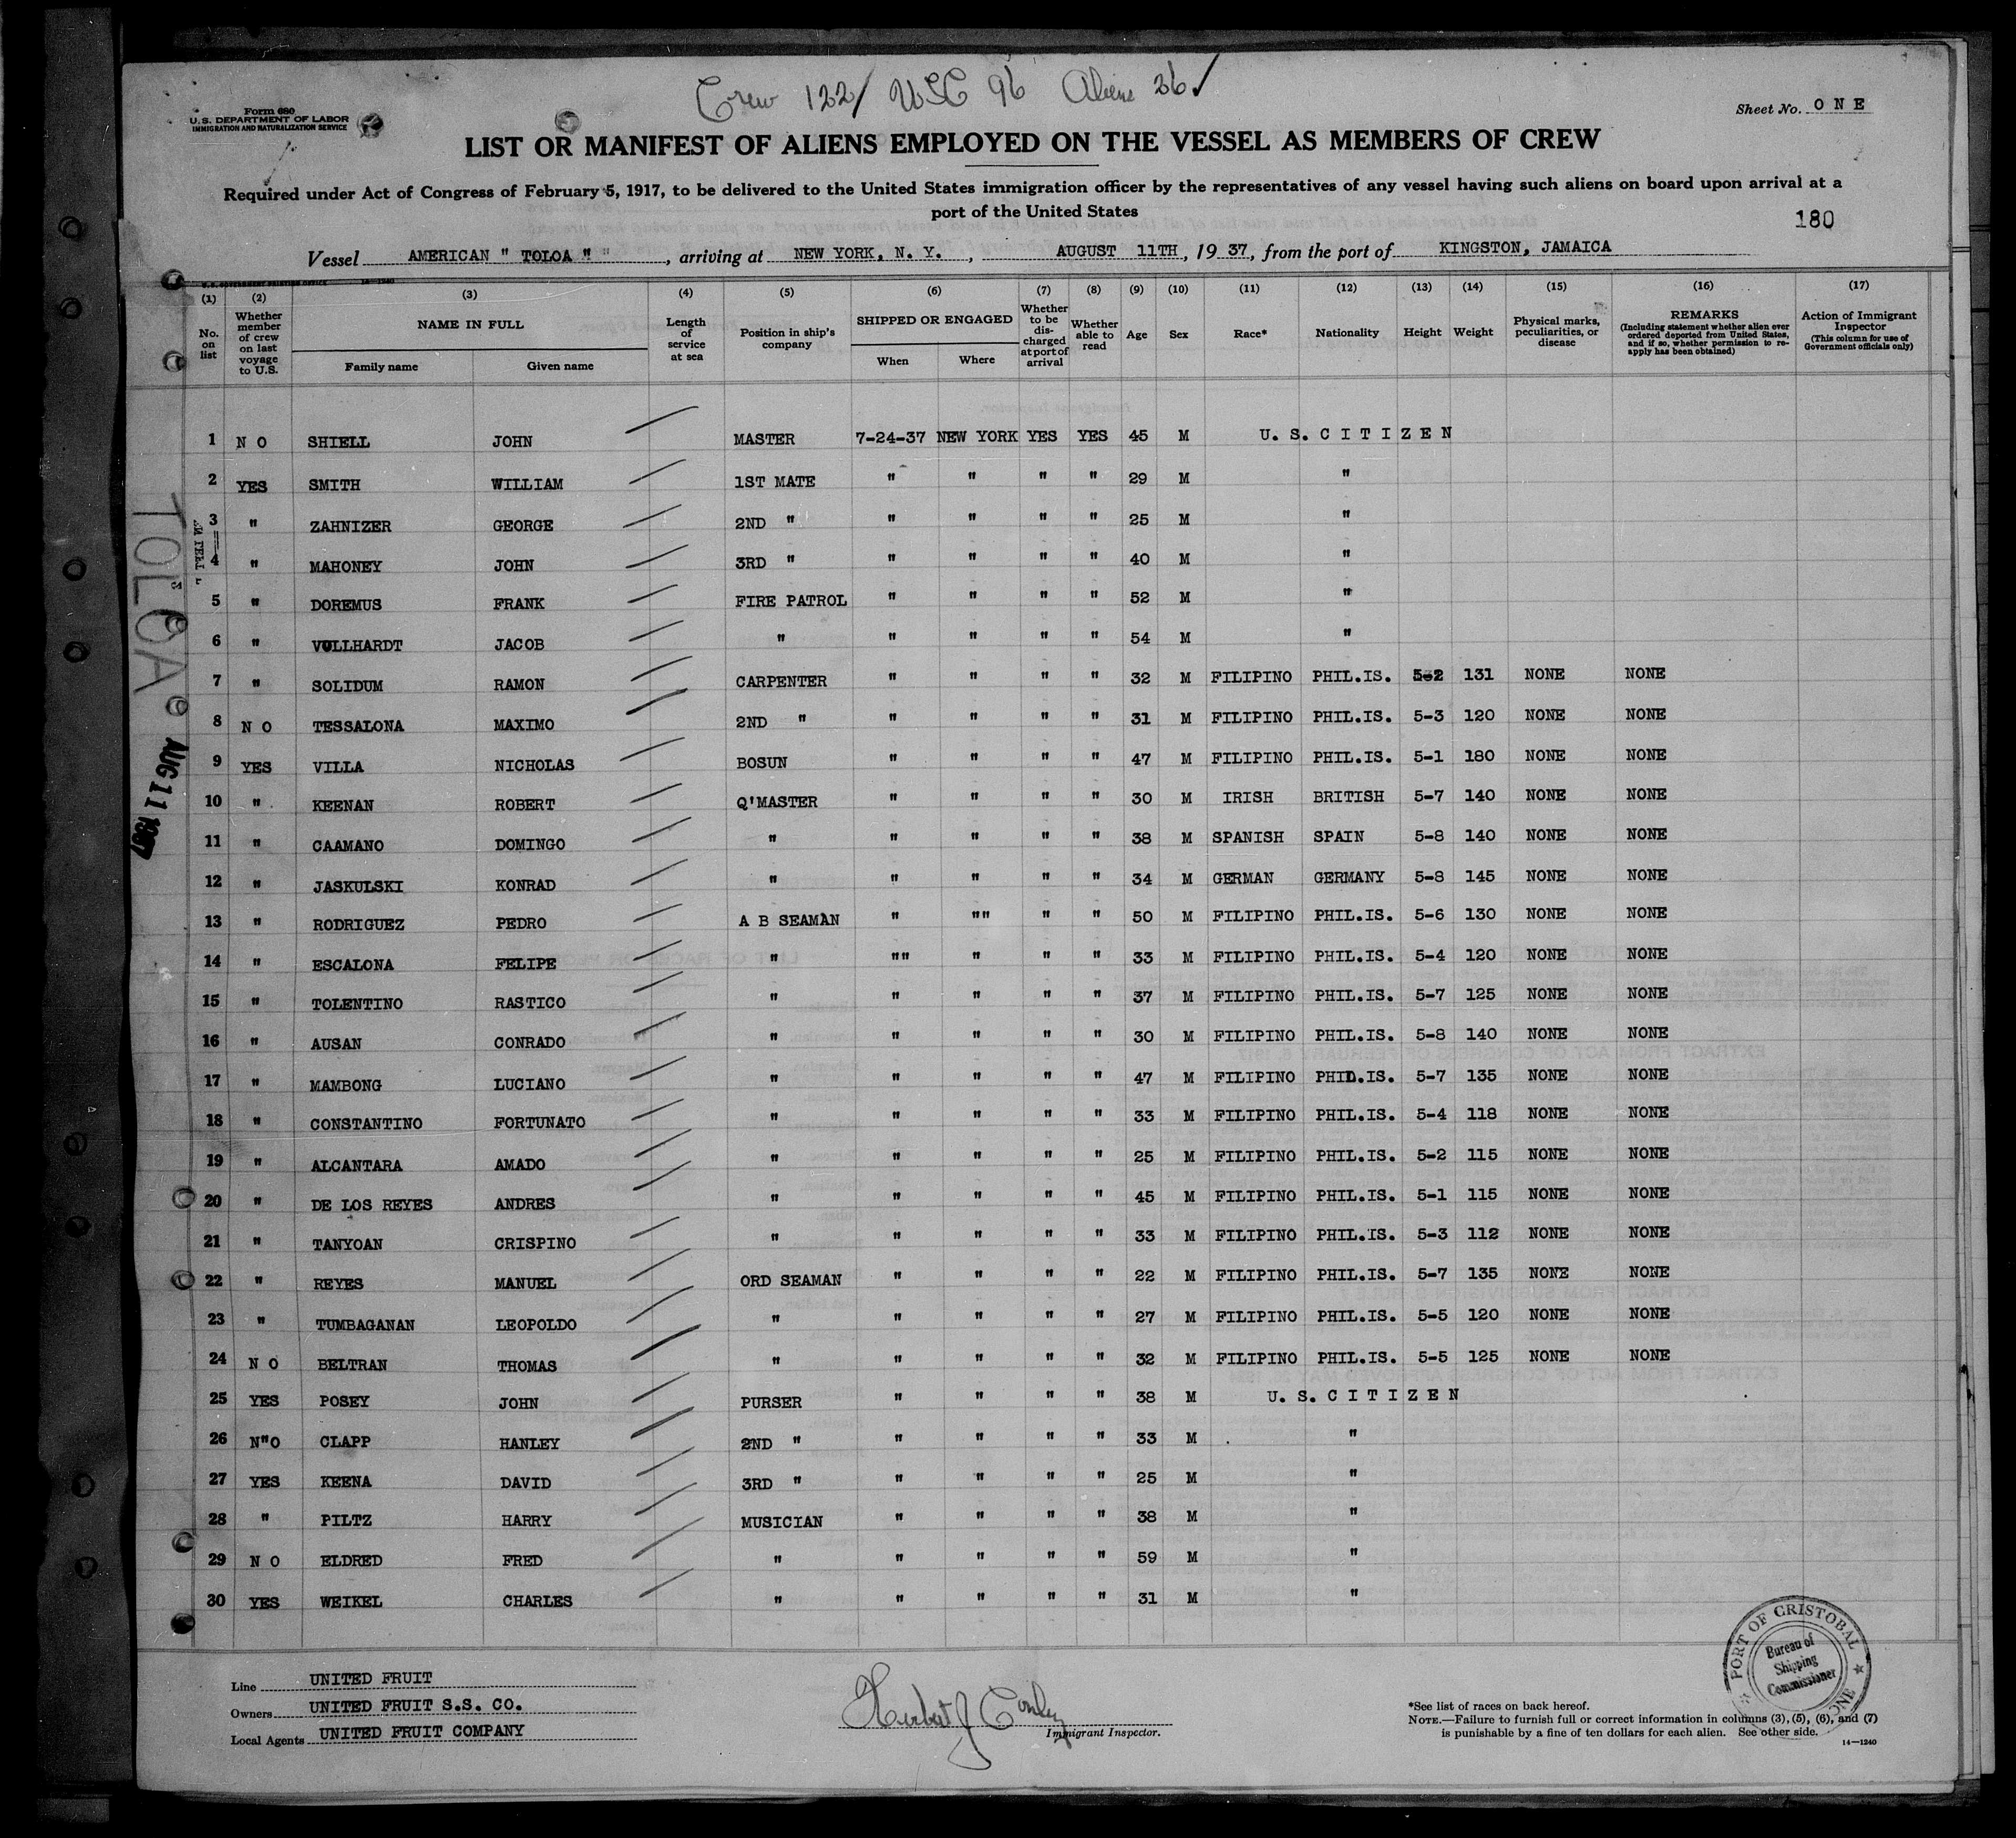 Crew 122/ USC 96 Aliens 26/
Form 680
U.S. DEPARTMENT OF LABOR
IMMIGRATION AND NATURALIZATION SERVICE
Sheet No. ONE
LIST OR MANIFEST OF ALIENS EMPLOYED ON THE VESSEL AS MEMBERS OF CREW
Required under Act of Congress of February 5, 1917, to be delivered to the United States immigration officer by the representatives of any vessel having such aliens on board upon arrival at a
port of the United States
180
Vessel AMERICAN " TOLOA " ", arriving at NEW YORK, N. Y., AUGUST 11TH, 1937, from the port of KINGSTON, JAMAICA
U.S. GOVERNMENT PRINTING OFFICE 14—1240
(1) (2) (3) (4) (5) (6) (7) (8) (9) (10) (11) (12) (13) (14) (15) (16) (17)
No. on list
Whether member of crew on last voyage to U.S.
NAME IN FULL
Family name Given name
Length of service at sea
Position in ship's company
SHIPPED OR ENGAGED
When Where
Whether to be discharged at port of arrival
Whether able to read
Age Sex Race* Nationality Height Weight
Physical marks, peculiarities, or disease
REMARKS
(Including statement whether alien ever ordered deported from United States, and if so, whether permission to re-apply has been obtained)
Action of Immigrant Inspector
(This column for use of Government officials only)
1 NO SHIELL JOHN MASTER 7-24-37 NEW YORK YES YES 45 M U. S. CITIZEN
2 YES SMITH WILLIAM 1ST MATE " " " " 29 M "
3 " ZAHNIZER GEORGE 2ND " " " " " 25 M "
4 " MAHONEY JOHN 3RD " " " " " 40 M "
5 " DOREMUS FRANK FIRE PATROL " " " " 52 M "
6 " VOLLHARDT JACOB " " " " " 54 M "
7 " SOLIDUM RAMON CARPENTER " " " " 32 M FILIPINO PHIL.IS. 5-2 131 NONE NONE
8 NO TESSALONA MAXIMO 2ND " " " " " 31 M FILIPINO PHIL.IS. 5-3 120 NONE NONE
9 YES VILLA NICHOLAS BOSUN " " " " 47 M FILIPINO PHIL.IS. 5-1 180 NONE NONE
10 " KEENAN ROBERT Q'MASTER " " " " 30 M IRISH BRITISH 5-7 140 NONE NONE
11 " CAAMANO DOMINGO " " " " " 38 M SPANISH SPAIN 5-8 140 NONE NONE
12 " JASKULSKI KONRAD " " " " " 34 M GERMAN GERMANY 5-8 145 NONE NONE
13 " RODRIGUEZ PEDRO A B SEAMAN " "" " " 50 M FILIPINO PHIL.IS. 5-6 130 NONE NONE
14 " ESCALONA FELIPE " "" " " " 33 M FILIPINO PHIL.IS. 5-4 120 NONE NONE
15 " TOLENTINO RASTICO " " " " " 37 M FILIPINO PHIL.IS. 5-7 125 NONE NONE
16 " AUSAN CONRADO " " " " " 30 M FILIPINO PHIL.IS. 5-8 140 NONE NONE
17 " MAMBONG LUCIANO " " " " " 47 M FILIPINO PHIL.IS. 5-7 135 NONE NONE
18 " CONSTANTINO FORTUNATO " " " " " 33 M FILIPINO PHIL.IS. 5-4 118 NONE NONE
19 " ALCANTARA AMADO " " " " " 25 M FILIPINO PHIL.IS. 5-2 115 NONE NONE
20 " DE LOS REYES ANDRES " " " " " 45 M FILIPINO PHIL.IS. 5-1 115 NONE NONE
21 " TANYOAN CRISPINO " " " " " 33 M FILIPINO PHIL.IS. 5-3 112 NONE NONE
22 " REYES MANUEL ORD SEAMAN " " " " 22 M FILIPINO PHIL.IS. 5-7 135 NONE NONE
23 " TUMBAGANAN LEOPOLDO " " " " " 27 M FILIPINO PHIL.IS. 5-5 120 NONE NONE
24 NO BELTRAN THOMAS " " " " " 32 M FILIPINO PHIL.IS. 5-5 125 NONE NONE
25 YES POSEY JOHN PURSER " " " " 38 M U. S. CITIZEN
26 N"O CLAPP HANLEY 2ND " " " " " 33 M "
27 YES KEENA DAVID 3RD " " " " " 25 M "
28 " PILTZ HARRY MUSICIAN " " " " 38 M "
29 NO ELDRED FRED " " " " " 59 M "
30 YES WEIKEL CHARLES " " " " " 31 M "
TOLOA
AUG 11 1937
Line UNITED FRUIT
Owners UNITED FRUIT S.S. CO.
Local Agents UNITED FRUIT COMPANY
Herbert J Conley
Immigrant Inspector.
*See list of races on back hereof.
NOTE.—Failure to furnish full or correct information in columns (3), (5), (6), and (7)
is punishable by a fine of ten dollars for each alien. See other side.
14—1240
PORT OF CRISTOBAL
Bureau of
Shipping
Commissioner